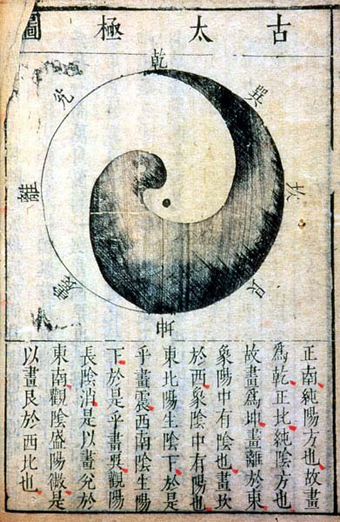 古太極圖
乾
兌
巽
離
坎
震
艮
坤
正南純陽方也故畫
爲乾正北純陰方也
故畫爲坤畫離於東
象陽中有陰也畫坎
於西象陰中有陽也
東北陽生陰下於是
乎畫震西南陰生陽
下於是乎畫巽觀陽
長陰消是以畫兌於
東南觀陰盛陽微是
以畫艮於西北也